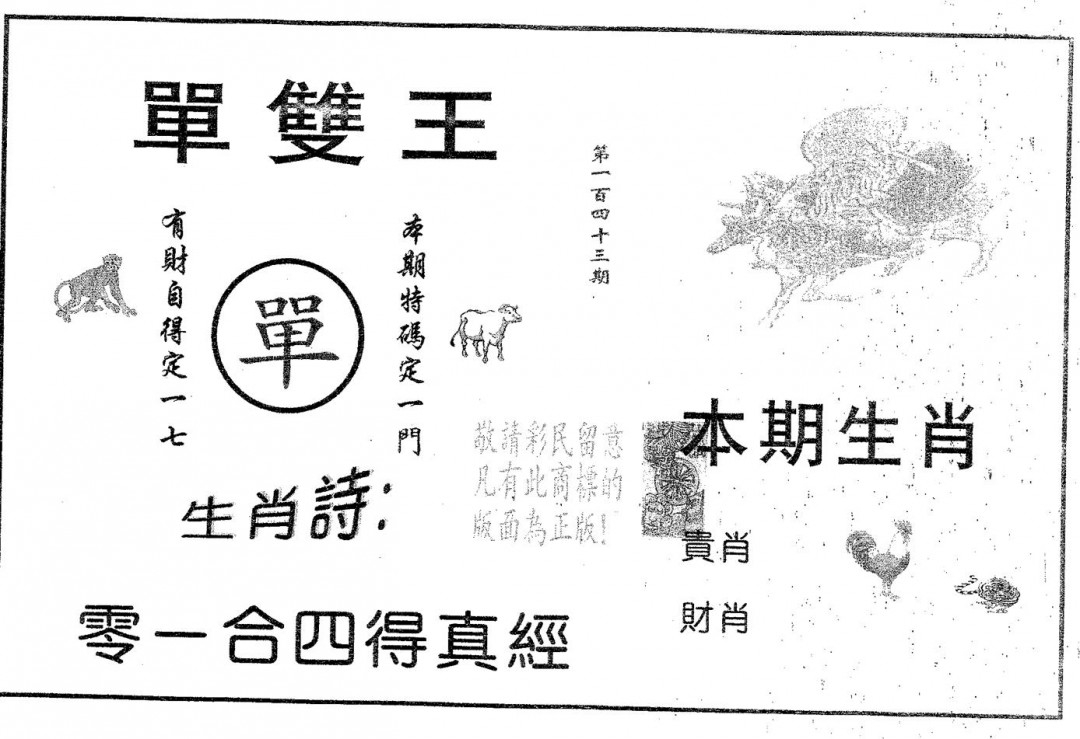 單雙王
第一百四十三期
本期特碼定一門
單
有財自得定一七
敬請彩民留意
凡有此商標的
版面為正版!
本期生肖
生肖詩:
貴肖
財肖
零一合四得真經